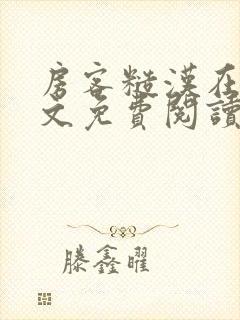 房客糙漢在
文免費閱讀
滕鑫曜